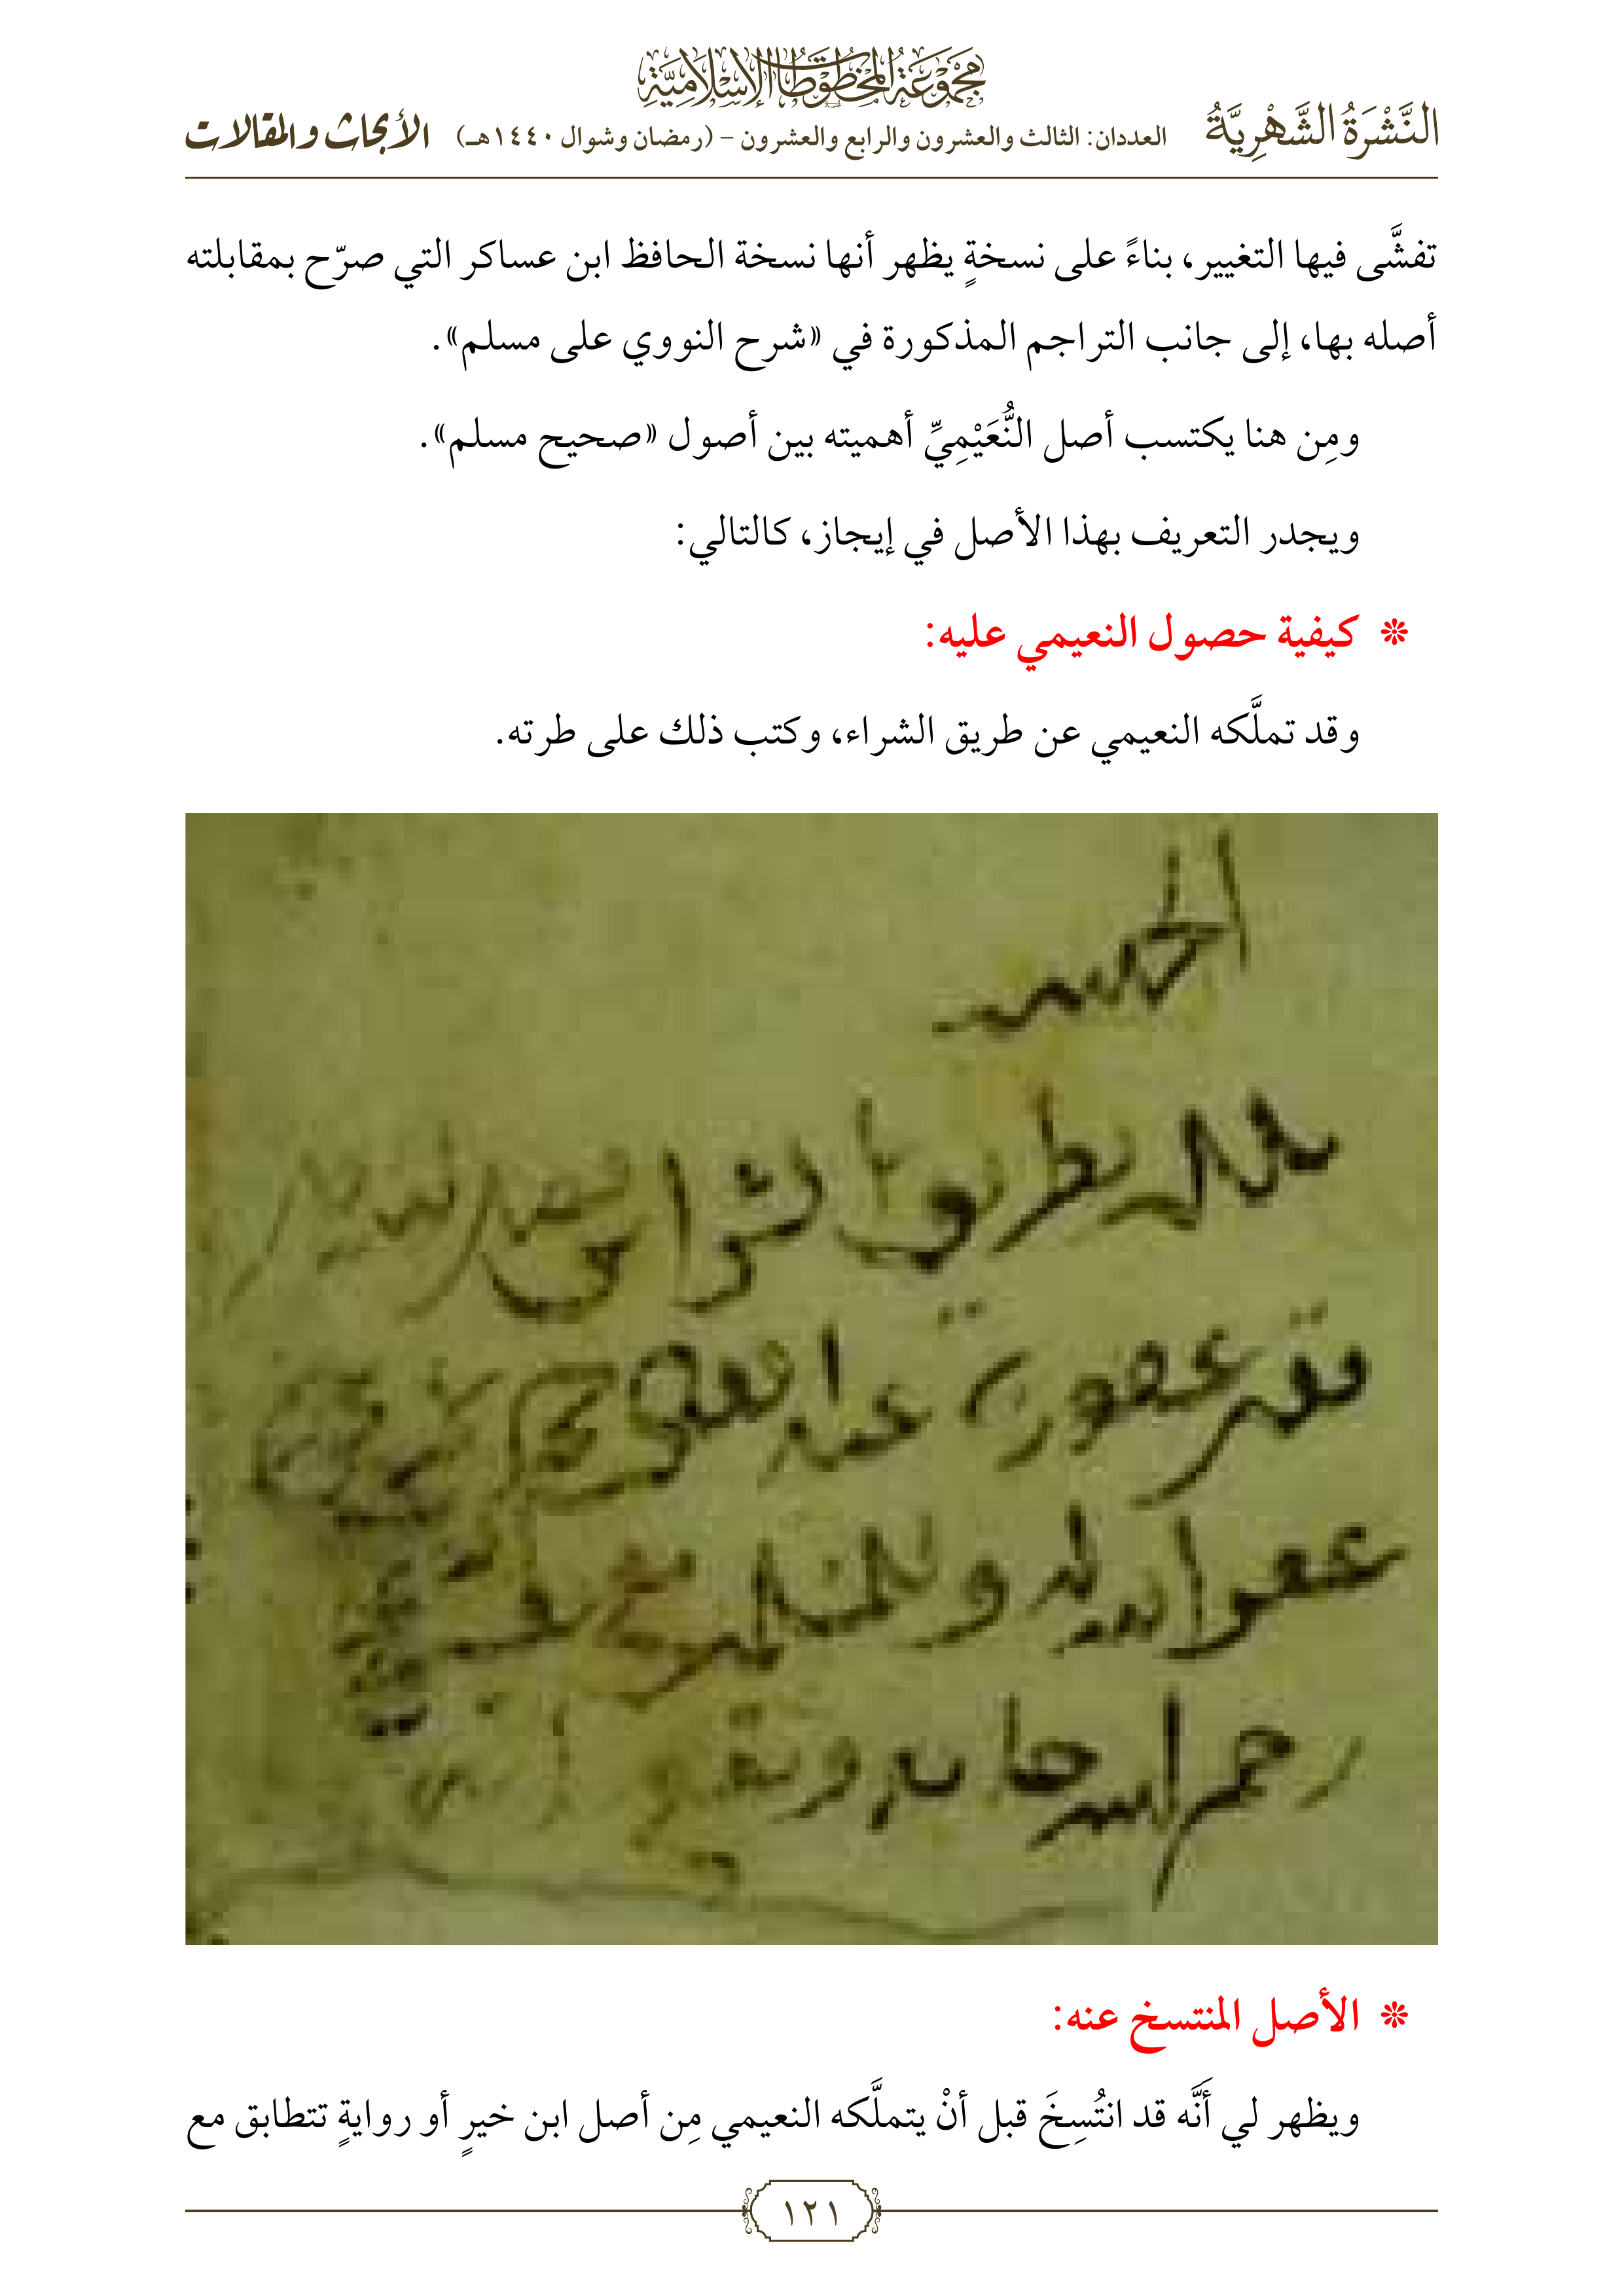 مجموعة المخطوطات الإسلامية
النَّشْرَةُ الشَّهْرِيَّةُ العددان: الثالث والعشرون والرابع والعشرون – (رمضان وشوال ١٤٤٠هـ) الأبحاث والمقالات
تفشَّى فيها التغيير، بناءً على نسخةٍ يظهر أنها نسخة الحافظ ابن عساكر التي صرّح بمقابلته
أصله بها، إلى جانب التراجم المذكورة في «شرح النووي على مسلم».
ومِن هنا يكتسب أصل النُّعَيْمِيِّ أهميته بين أصول «صحيح مسلم».
ويجدر التعريف بهذا الأصل في إيجاز، كالتالي:
* كيفية حصول النعيمي عليه:
وقد تملَّكه النعيمي عن طريق الشراء، وكتب ذلك على طرته.
الحمد
عفو الله
رحم الله
* الأصل المنتسخ عنه:
ويظهر لي أَنَّه قد انتُسِخَ قبل أنْ يتملَّكه النعيمي مِن أصل ابن خيرٍ أو روايةٍ تتطابق مع
١٢١